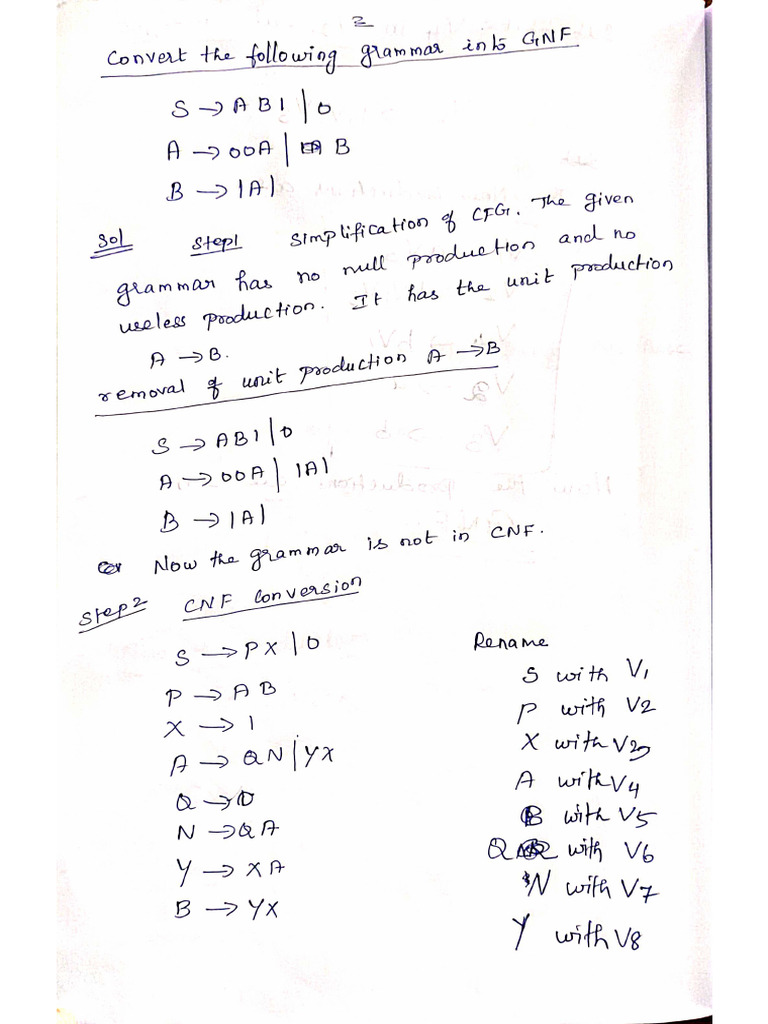 2
Convert the following grammar into GNF
S → AB1 | 0
A → 00A | B
B → 1A1
Sol Step1 Simplification of CFG. The given
grammar has no null production and no
useless production. It has the unit production
A → B.
removal of unit production A → B
S → AB1 | 0
A → 00A | 1A1
B → 1A1
Now the grammar is not in CNF.
Step2 CNF Conversion
S → PX | 0
P → AB
X → 1
A → QN | YX
Q → 0
N → QA
Y → XA
B → YX
Rename
S with V1
P with V2
X with V3
A with V4
B with V5
Q with V6
N with V7
Y with V8